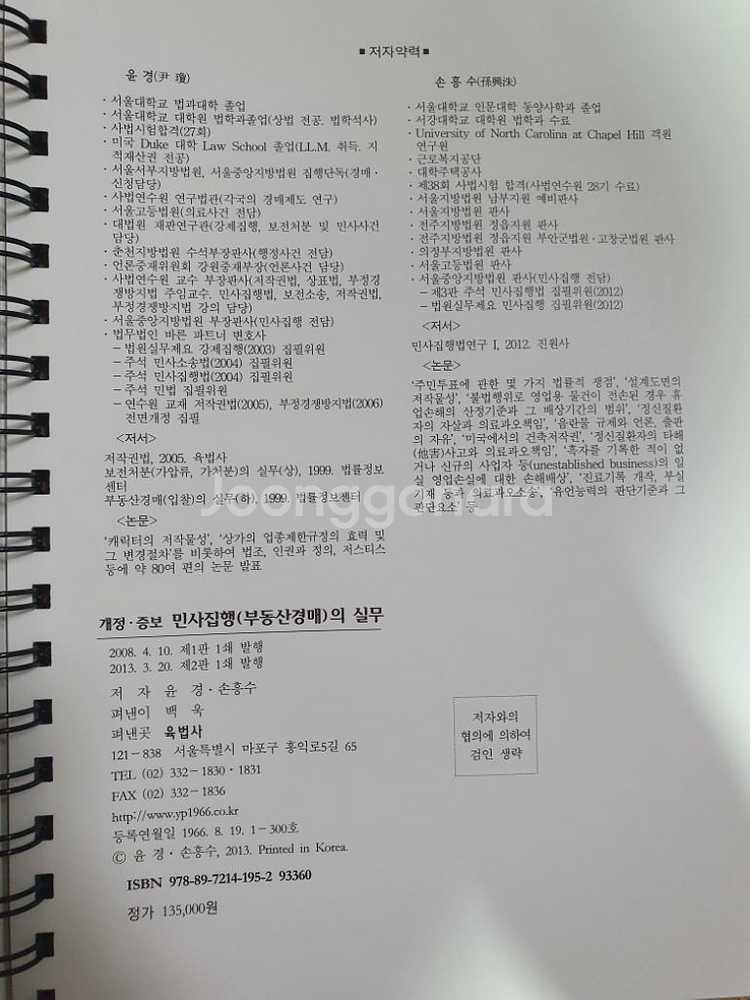 ■ 저자약력 ■
윤 경(尹 瓊)
· 서울대학교 법과대학 졸업
· 서울대학교 대학원 법학과졸업(상법 전공. 법학석사)
· 사법시험합격(27회)
· 미국 Duke 대학 Law School 졸업(LL.M. 취득. 지
적재산권 전공)
· 서울서부지방법원, 서울중앙지방법원 집행단독(경매 ·
신청담당)
· 사법연수원 연구법관(각국의 경매제도 연구)
· 서울고등법원(의료사건 전담)
· 대법원 재판연구관(강제집행, 보전처분 및 민사사건
담당)
· 춘천지방법원 수석부장판사(행정사건 전담)
· 언론중재위원회 강원중재부장(언론사건 담당)
· 사법연수원 교수 부장판사(저작권법, 상표법, 부정경
쟁방지법 주임교수. 민사집행법, 보전소송, 저작권법,
부정경쟁방지법 강의 담당)
· 서울중앙지방법원 부장판사(민사집행 전담)
· 법무법인 바른 파트너 변호사
– 법원실무제요 강제집행(2003) 집필위원
– 주석 민사소송법(2004) 집필위원
– 주석 민사집행법(2004) 집필위원
– 주석 민법 집필위원
– 연수원 교재 저작권법(2005), 부정경쟁방지법(2006)
전면개정 집필
<저서>
저작권법, 2005. 육법사
보전처분(가압류, 가처분)의 실무(상), 1999. 법률정보
센터
부동산경매(입찰)의 실무(하). 1999. 법률정보센터
<논문>
'캐릭터의 저작물성', '상가의 업종제한규정의 효력 및
그 변경절차'를 비롯하여 법조, 인권과 정의, 저스티스
등에 약 80여 편의 논문 발표
손 흥 수(孫興洙)
· 서울대학교 인문대학 동양사학과 졸업
· 서강대학교 대학원 법학과 수료
· University of North Carolina at Chapel Hill 객원
연구원
· 근로복지공단
· 대학주택공사
· 제38회 사법시험 합격(사법연수원 28기 수료)
· 서울지방법원 남부지원 예비판사
· 서울지방법원 판사
· 전주지방법원 정읍지원 판사
· 전주지방법원 정읍지원 부안군법원 · 고창군법원 판사
· 의정부지방법원 판사
· 서울고등법원 판사
· 서울중앙지방법원 판사(민사집행 전담)
– 제3판 주석 민사집행법 집필위원(2012)
– 법원실무제요 민사집행 집필위원(2012)
<저서>
민사집행법연구 I, 2012. 진원사
<논문>
'주민투표에 관한 몇 가지 법률적 쟁점', '설계도면의
저작물성', '불법행위로 영업용 물건이 전손된 경우 휴
업손해의 산정기준과 그 배상기간의 범위', '정신질환
자의 자살과 의료과오책임', '음란물 규제와 언론, 출판
의 자유', '미국에서의 건축저작권', '정신질환자의 타해
(他害)사고와 의료과오책임', '흑자를 기록한 적이 없
거나 신규의 사업자 등(unestablished business)의 일
실 영업손실에 대한 손해배상', '진료기록 개작, 부실
기재 등과 의료과오소송', '유언능력의 판단기준과 그
판단요소' 등
Joonggonara
개정 · 증보 민사집행(부동산경매)의 실무
2008. 4. 10. 제1판 1쇄 발행
2013. 3. 20. 제2판 1쇄 발행
저 자 윤 경 · 손흥수
펴낸이 백 욱
펴낸곳 육법사
121－838 서울특별시 마포구 홍익로5길 65
TEL (02) 332－1830 · 1831
FAX (02) 332－1836
http://www.yp1966.co.kr
등록연월일 1966. 8. 19. 1－300호
ⓒ 윤 경 · 손흥수, 2013. Printed in Korea.
ISBN 978-89-7214-195-2 93360
정가 135,000원
저자와의
협의에 의하여
검인 생략